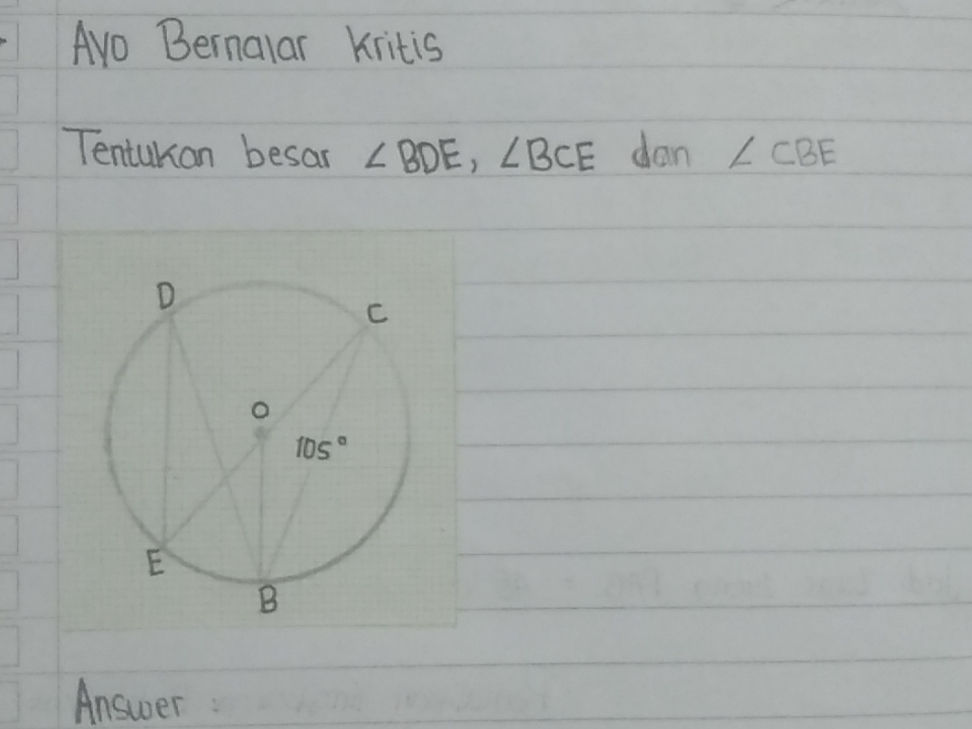 Ayo Bernalar Kritis
Tentukan besar ∠BDE, ∠BCE dan ∠CBE
D
C
O
105°
E
B
Answer :